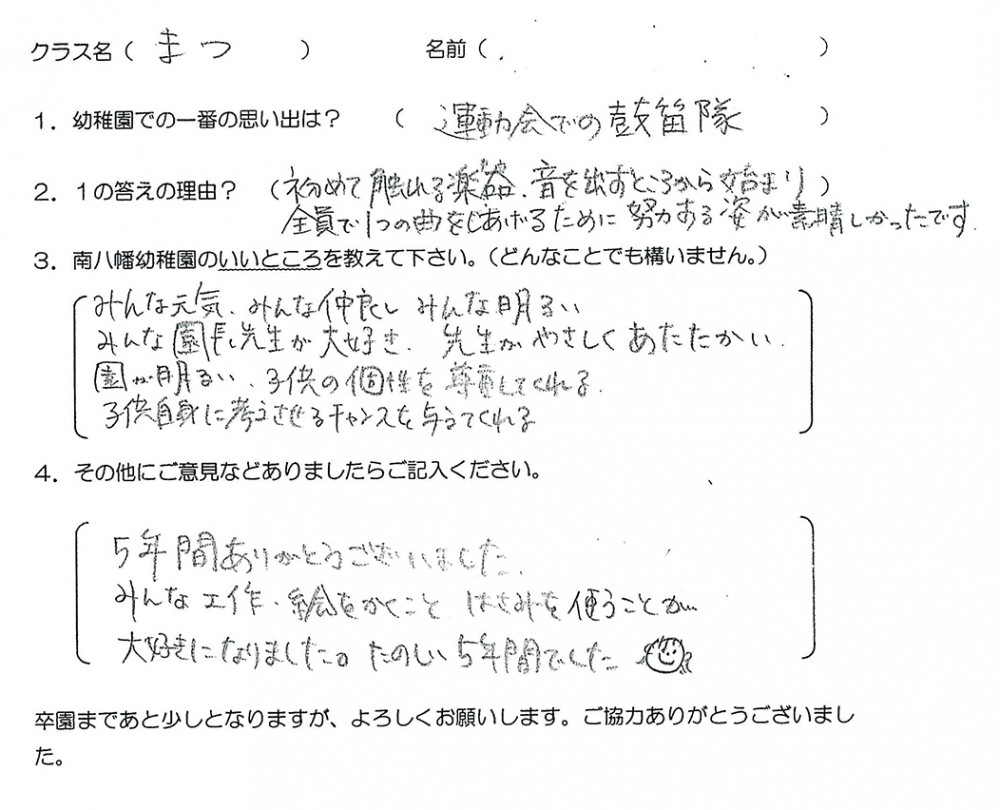 クラス名（ まつ ） 名前（ ）
1．幼稚園での一番の思い出は？ （ 運動会での鼓笛隊 ）
2．1の答えの理由？ （初めて触れる楽器、音を出すところから始まり）
全員で1つの曲をしあげるために努力する姿が素晴しかったです.
3．南八幡幼稚園のいいところを教えて下さい。（どんなことでも構いません。）
みんな元気、みんな仲良し みんな明るい
みんな園長先生が大好き. 先生がやさしくあたたかい.
園が明るい、子供の個性を尊重してくれる.
子供自身に考えさせるチャンスを与えてくれる
4．その他にご意見などありましたらご記入ください。
5年間ありがとうございました.
みんな工作・絵をかくこと はさみを使うことが
大好きになりました。たのしい5年間でした
卒園まであと少しとなりますが、よろしくお願いします。ご協力ありがとうございまし
た。